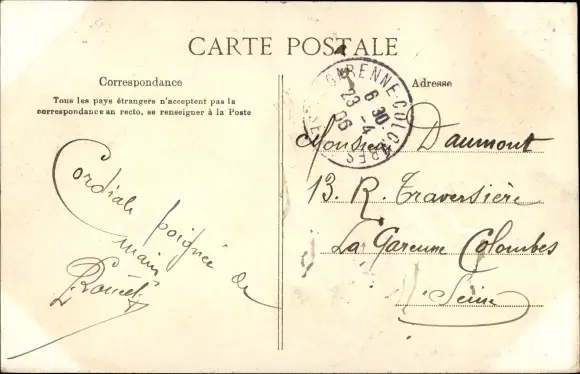 CARTE POSTALE
Correspondance
Tous les pays étrangers n'acceptent pas la
correspondance au recto, se renseigner à la Poste
Cordiale poignée de
main
Adresse
GARENNE-COLOMBES
6 30
23 -4
06
SEINE
Monsieur Daumont
13. R. Traversière
La Garenne Colombes
Seine